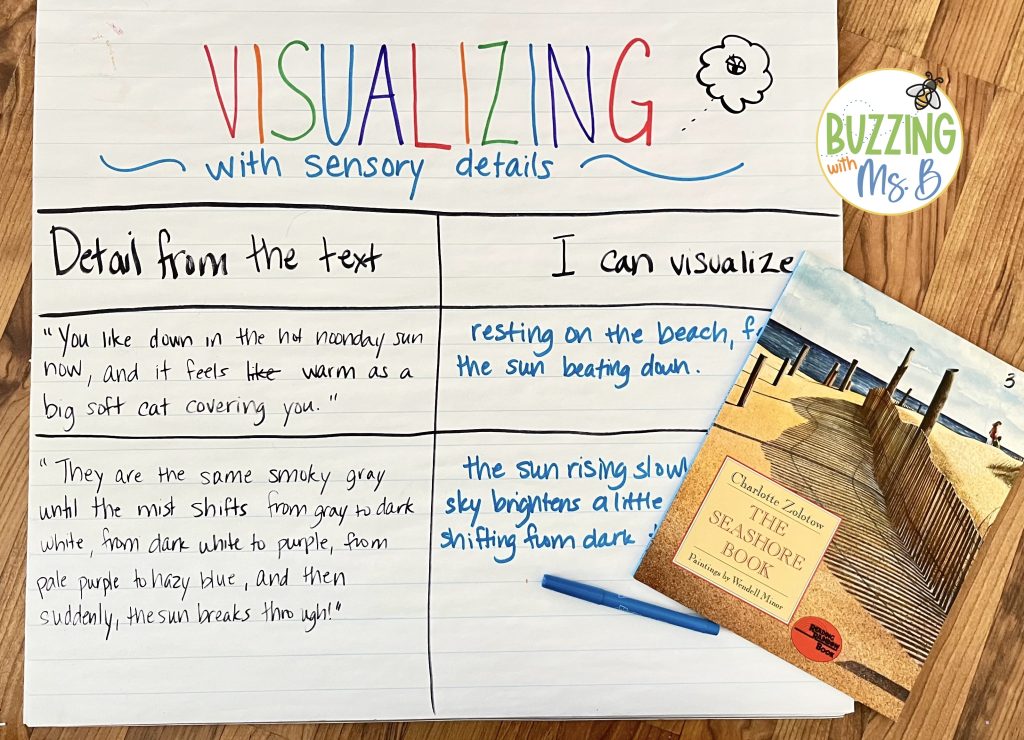 VISUALIZING
with sensory details
BUZZING
with
Ms. B
Detail from the text
I can visualize
"You like down in the hot noonday sun
now, and it feels like warm as a
big soft cat covering you."
resting on the beach,
the sun beating down.
"They are the same smoky gray
until the mist shifts from gray to dark
white, from dark white to purple, from
pale purple to hazy blue, and then
suddenly, the sun breaks through!"
the sun rising
sky brightens a little
shifting from dark
3
Charlotte Zolotow
THE
SEASHORE
BOOK
Paintings by Wendell Minor
READING
RAINBOW
BOOK